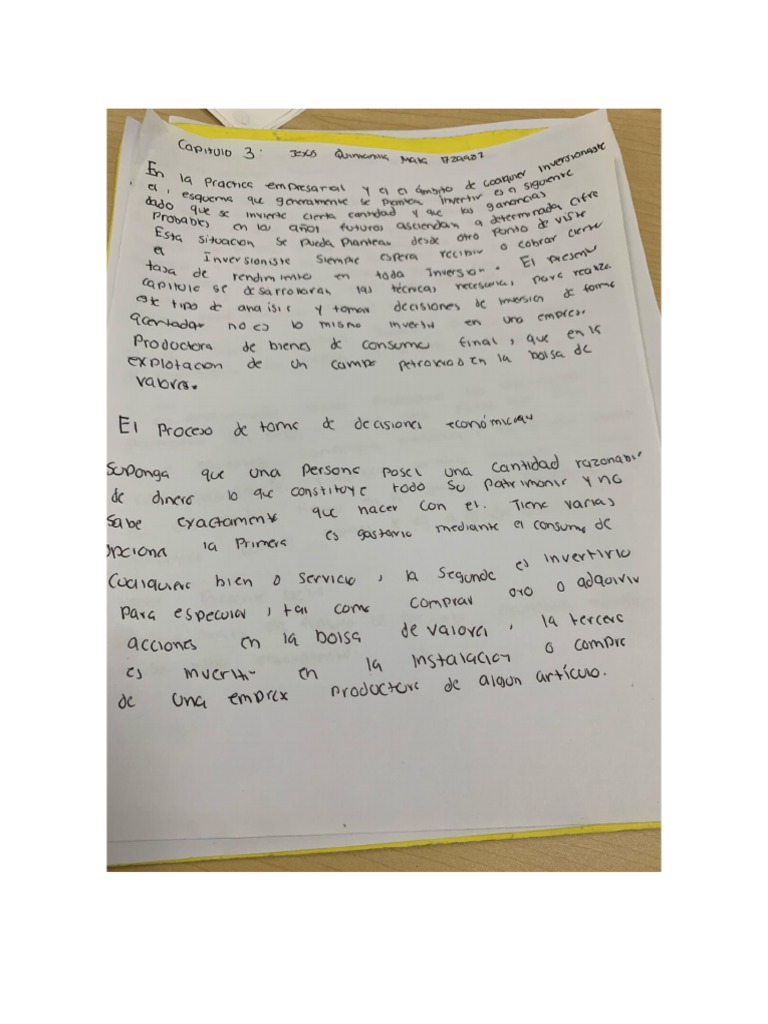 Capitulo 3. Quintanilla Mata
En la Practica empresarial y en el ámbito de cualquier inversionista
el, esquema que generalmente se plantea invertir es el siguiente
dado que se invierte cierta cantidad y que las ganancias
Probables en los años futuros asciendan a determinada cifre
Esta situacion se pueda Plantear desde otro punto de viste
el Inversioniste siempre espera recibir o cobrar cierte
tasa de rendimiento en toda Inversion. El presente
capitulo se desarrollaran las técnicas necesarias, para realize
este tipo de analisis y tomar decisiones de inversion de forme
acertadar no es lo mismo invertir en una empresa
Productora de bienes de consumo final, que en la
explotacion de un campo petrolero o en la bolsa de
valores.
El Proceso de tome de decisiones económicas
Suponga que una Persone posee una cantidad razonable
de dinero lo que constituye todo su patrimonio y no
sabe exactamente que hacer con el. Tiene varias
opciona la Primera es gastarlo mediante el consumo de
Cualquiere bien o servicio, la segunde es invertirlo
para especular, tal como comprar oro o adquirir
acciones en la bolsa de valores, la tercere
es invertir en la instalacion o compre
de una empresa productore de algun artículo.